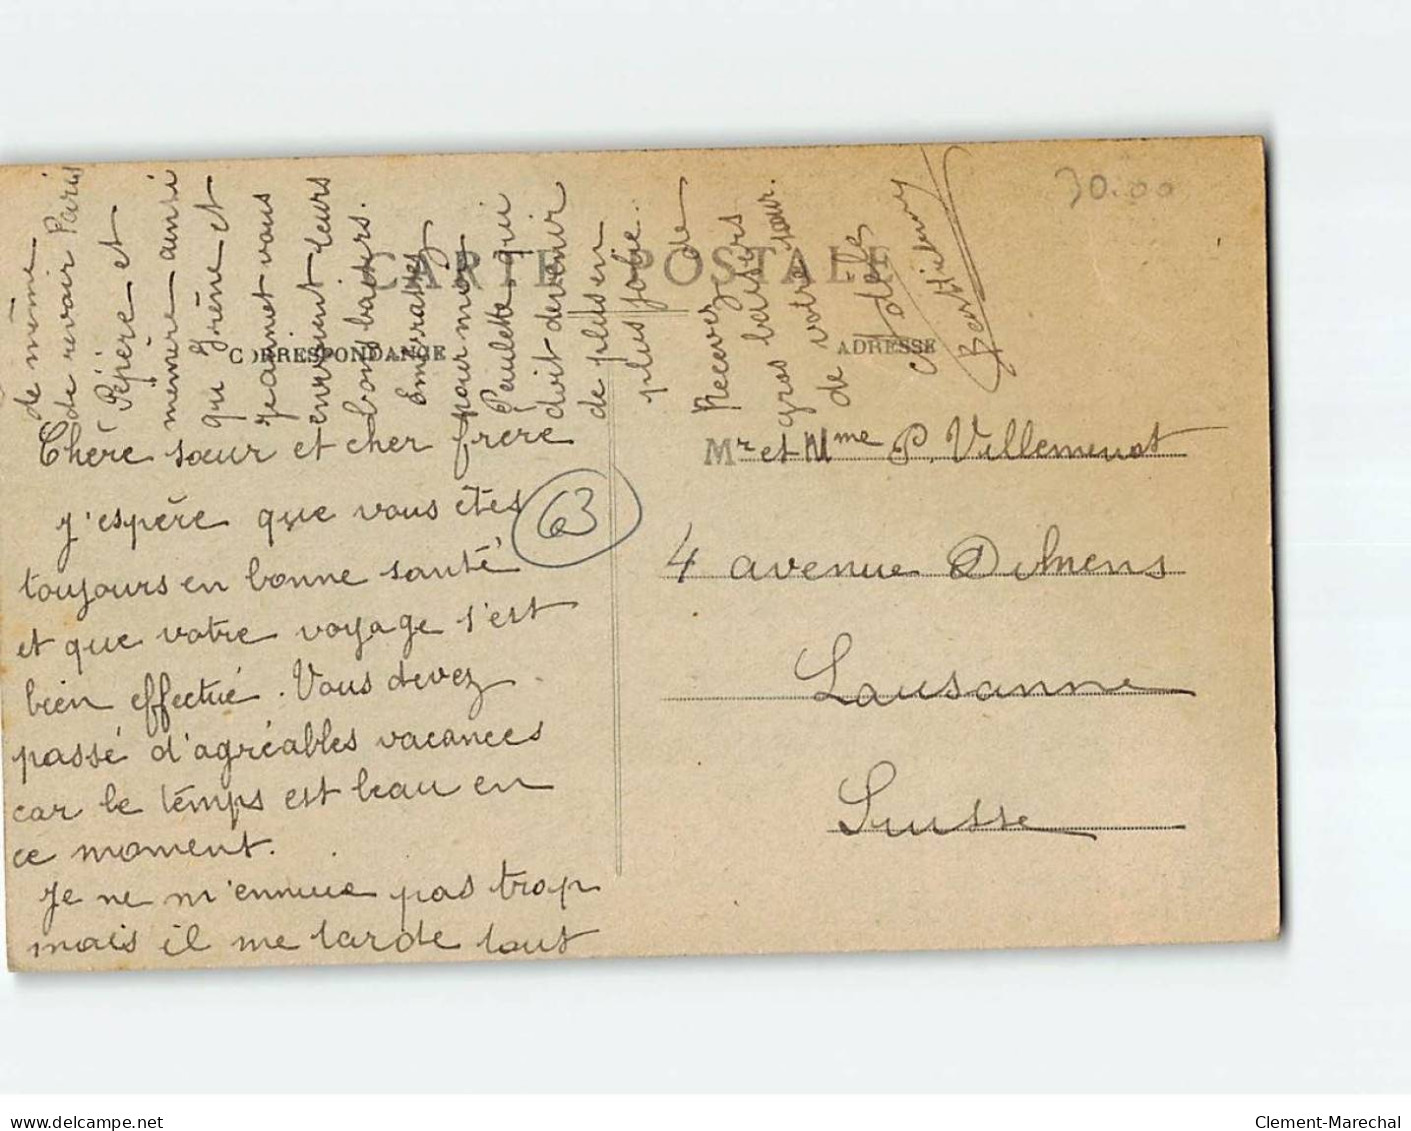 CARTE POSTALE
CORRESPONDANCE
ADRESSE
30.00
63
Chère sœur et cher frère
J'espère que vous êtes
toujours en bonne santé
et que votre voyage s'est
bien effectué. Vous devez
passé d'agréables vacances
car le temps est beau en
ce moment.
Je ne m'ennuie pas trop
mais il me tarde tout
de même
de revoir Paris
Pépère et
mémère ainsi
qu'Irène et
Jeannet vous
envoient leurs
bons baisers.
Embrassez
pour moi
Paulette qui
doit devenir
de plus en
plus jolie.
Recevez de
gros baisers
de votre sœur
adèle
Mr et Mme P. Villemenot
4 avenue
Lausanne
Suisse
www.delcampe.net/63
Clement-Marechal